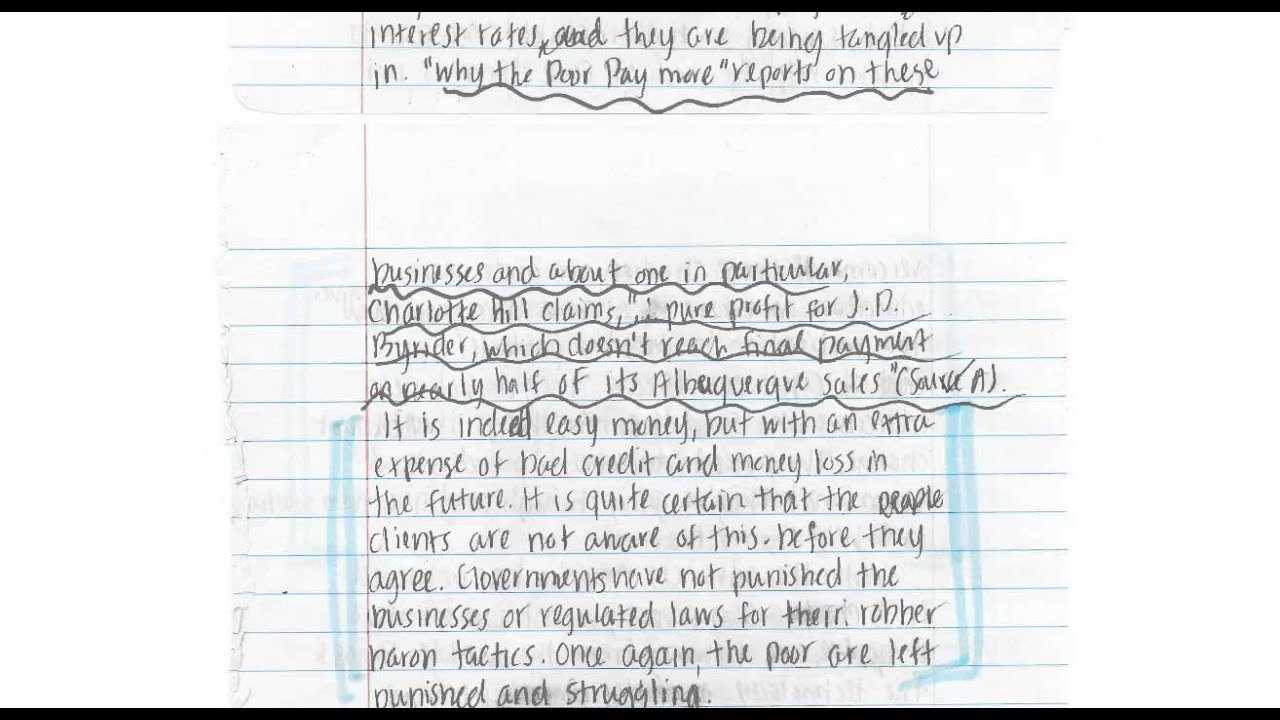 interest rates, and they are being tangled up
in. "Why the Poor Pay more" reports on these
businesses and about one in particular,
Charlotte Hill claims, "... pure profit for J.D.
Byrider, which doesn't reach final payment
on nearly half of its Albuquerque sales" (Source A).
It is indeed easy money, but with an extra
expense of bad credit and money loss in
the future. It is quite certain that the people
clients are not aware of this. before they
agree. Governments have not punished the
businesses or regulated laws for their robber
baron tactics. Once again, the poor are left
punished and struggling.